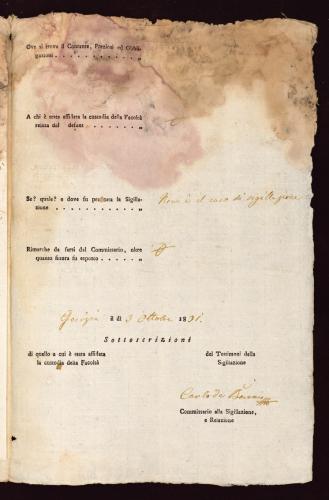 Ove si trova il Contante, Preziosi ed Obbli-
gazioni . . . . . . . . . . . . „
A chi è stata affidata la custodia della Facoltà
relitta dal defunto . . . . . . . „
Se? quale? e dove fu praticata la Sigilla-
zione . . . . . . . . . . . . „ Non è il caso di sigillazione
Rimarche da farsi dal Commissario, oltre
quanto finora fu esposto . . . . . „
Gorizia il di 3 Ottobre 1831.
Sottoscrizioni
di quello a cui è stata affidata
la custodia della Facoltà
dei Testimoni della
Sigillazione
Carlo de
Commissario alla Sigillazione,
e Relazione